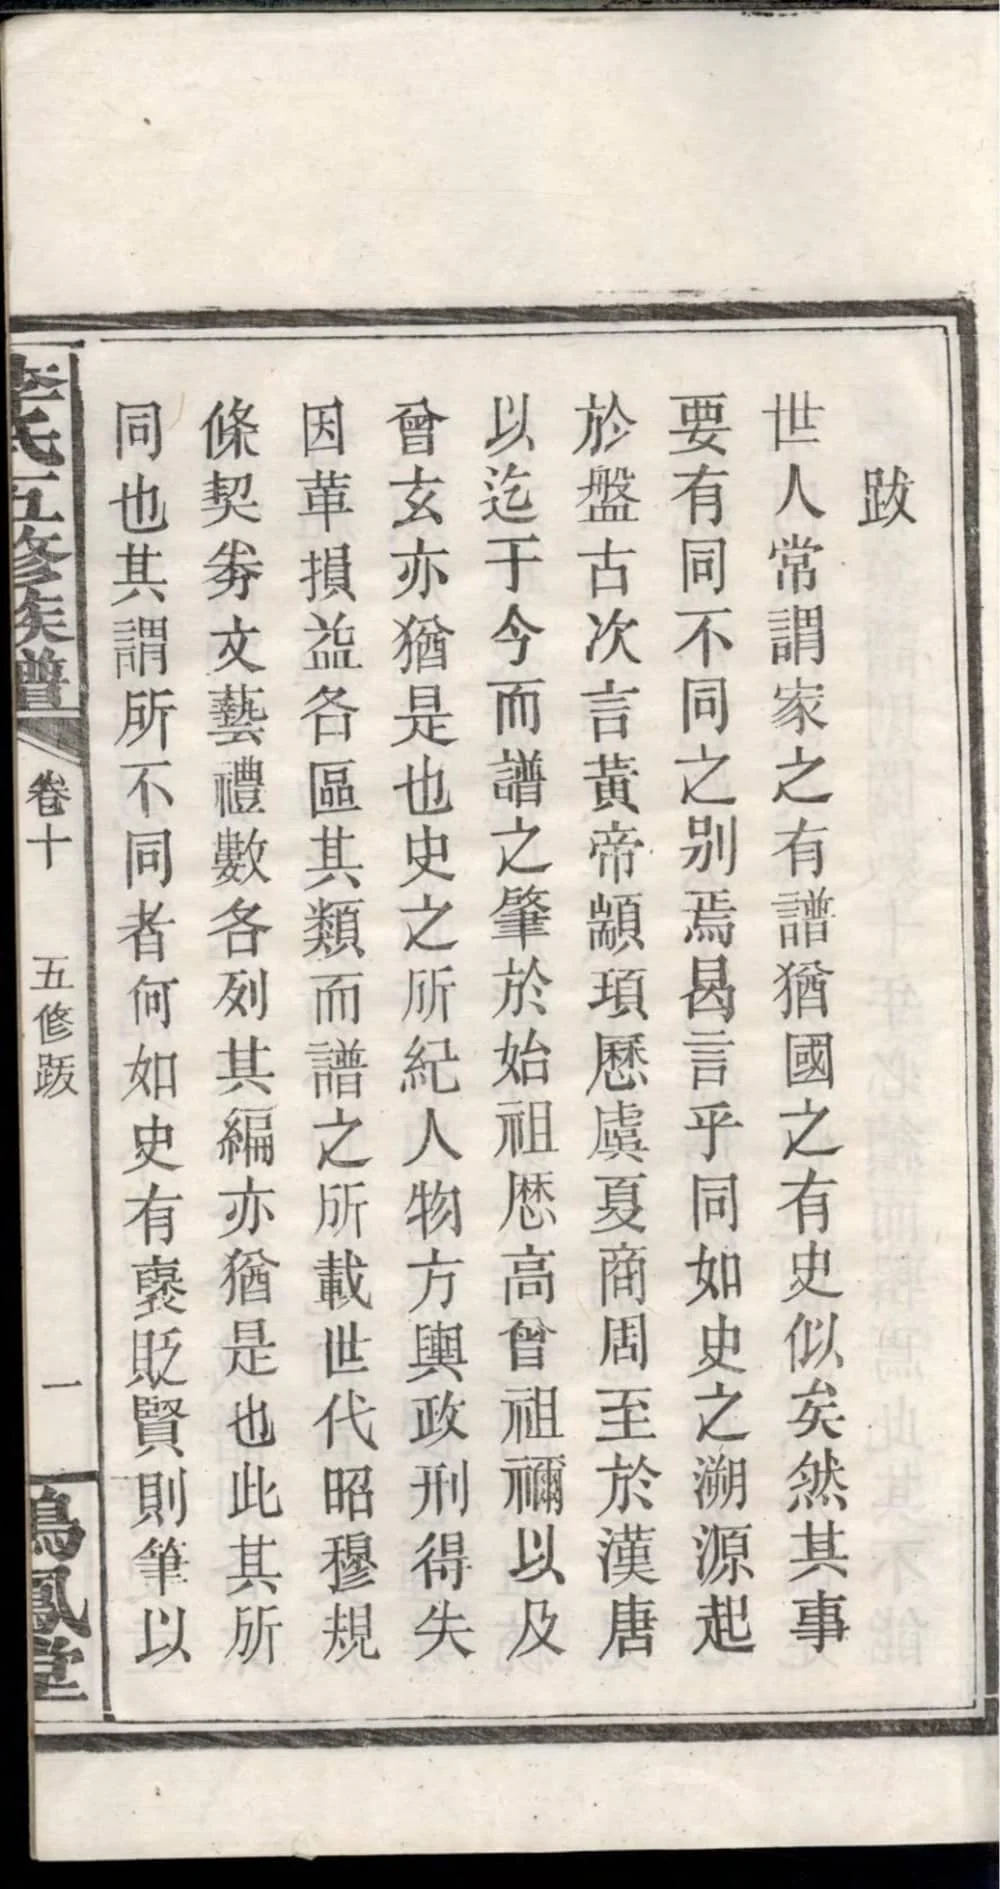 跋
世人常謂家之有譜猶國之有史似矣然其事
要有同不同之別焉曷言乎同如史之溯源起
於盤古次言黃帝顓頊歷虞夏商周至於漢唐
以迄于今而譜之肇於始祖歷高曾祖禰以及
曾玄亦猶是也史之所紀人物方輿政刑得失
因革損益各區其類而譜之所載世代昭穆規
條契券文藝禮數各列其編亦猶是也此其所
同也其謂所不同者何如史有褒貶賢則筆以
李氏五修族譜
卷十
五修跋
一
鳴鳳堂